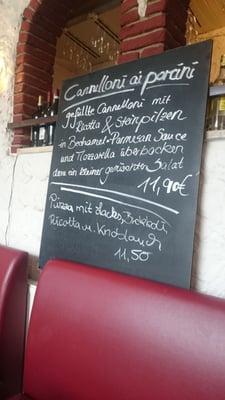 Cannelloni ai porcini
gefüllte Cannelloni mit
Ricotta & Steinpilzen
in Bechamel-Parmesan Sauce
und Mozzarella überbacken
dazu ein kleiner gemischter Salat
11,90€
Pizza mit Lachs, Brokkoli,
Ricotta u. Knoblauch
11,50